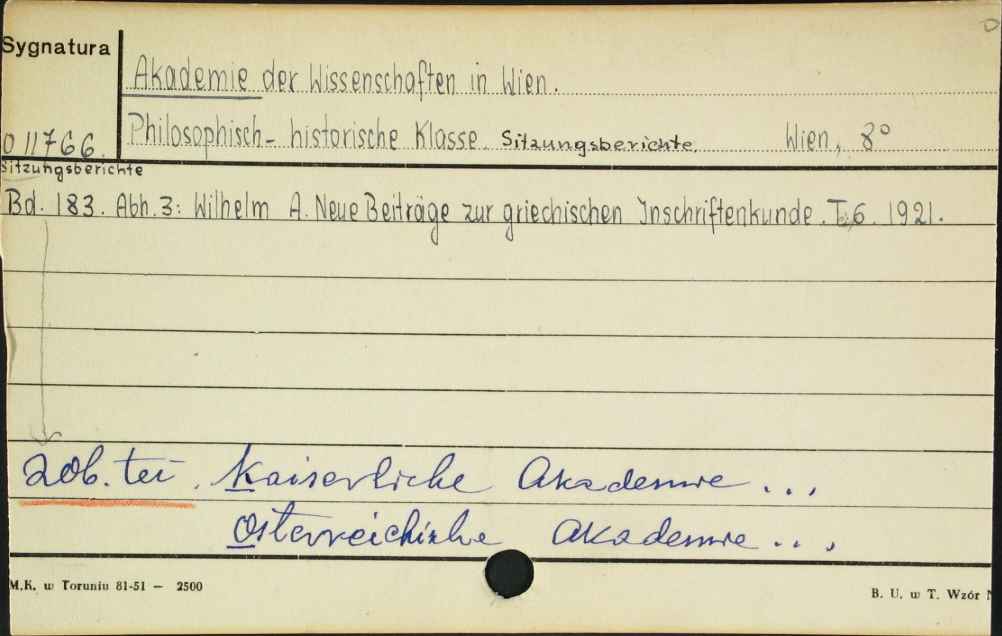 Sygnatura
Akademie der Wissenschaften in Wien.
O 11766. Philosophisch- historische Klasse. Sitzungsberichte. Wien, 8°
Sitzungsberichte
Bd. 183. Abh. 3: Wilhelm A. Neue Beiträge zur griechischen Inschriftenkunde. T. 6. 1921.
zob. też . Kaiserliche Akademie ...
Österreichische Akademie ...
M.K. w Toruniu 81-51 — 2500
B. U. w T. Wzór